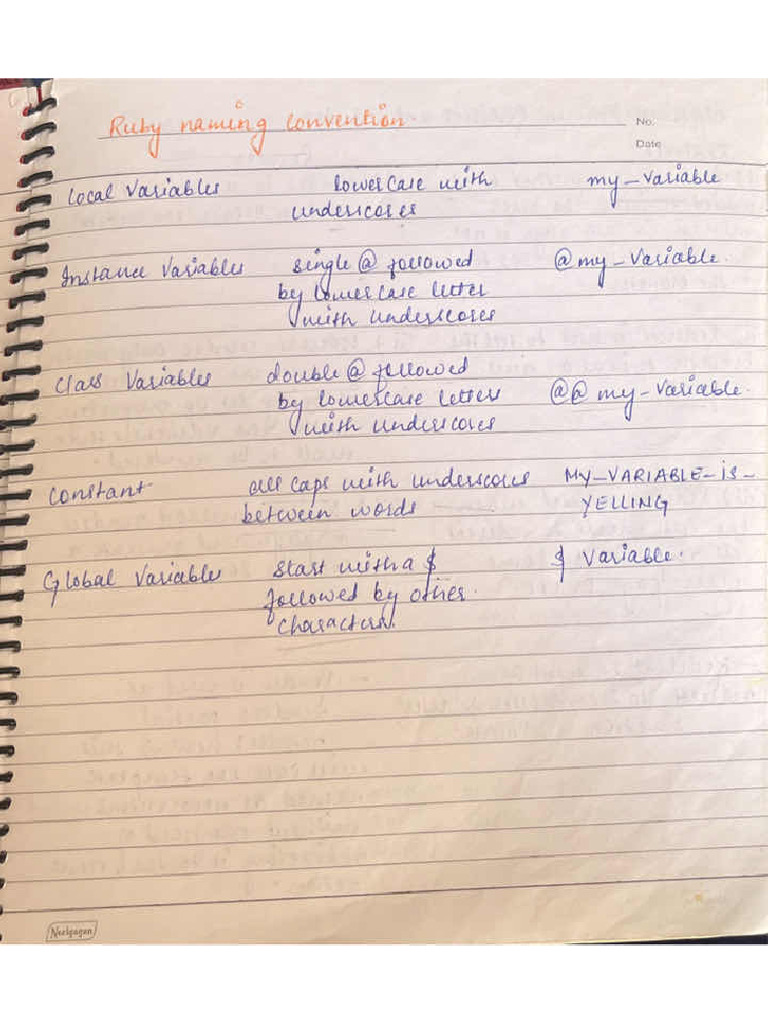 Ruby naming convention
No.
Date
Local Variables lowercase with my_variable
underscores
Instance Variables single @ followed @my_variable.
by lowercase letter
with underscores
Class Variables double @ followed
by lowercase letters @@ my_variable.
with underscores
Constant all caps with underscores MY_VARIABLE_iS_
between words YELLING
Global Variable start with a $ $ variable.
followed by other.
characters.
Neelgagan